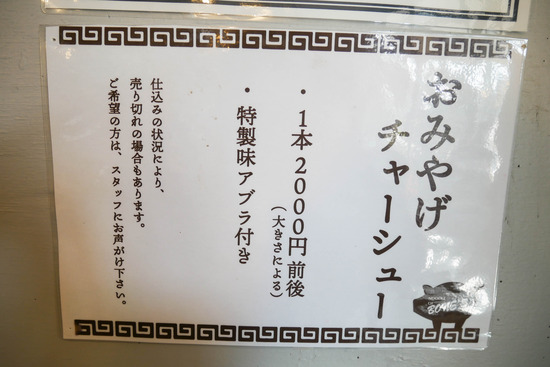 おみやげ
チャーシュー
・1本2000円前後
(大きさによる)
・特製味アブラ付き
仕込みの状況により、
売り切れの場合もあります。
ご希望の方は、スタッフにお声がけ下さい。